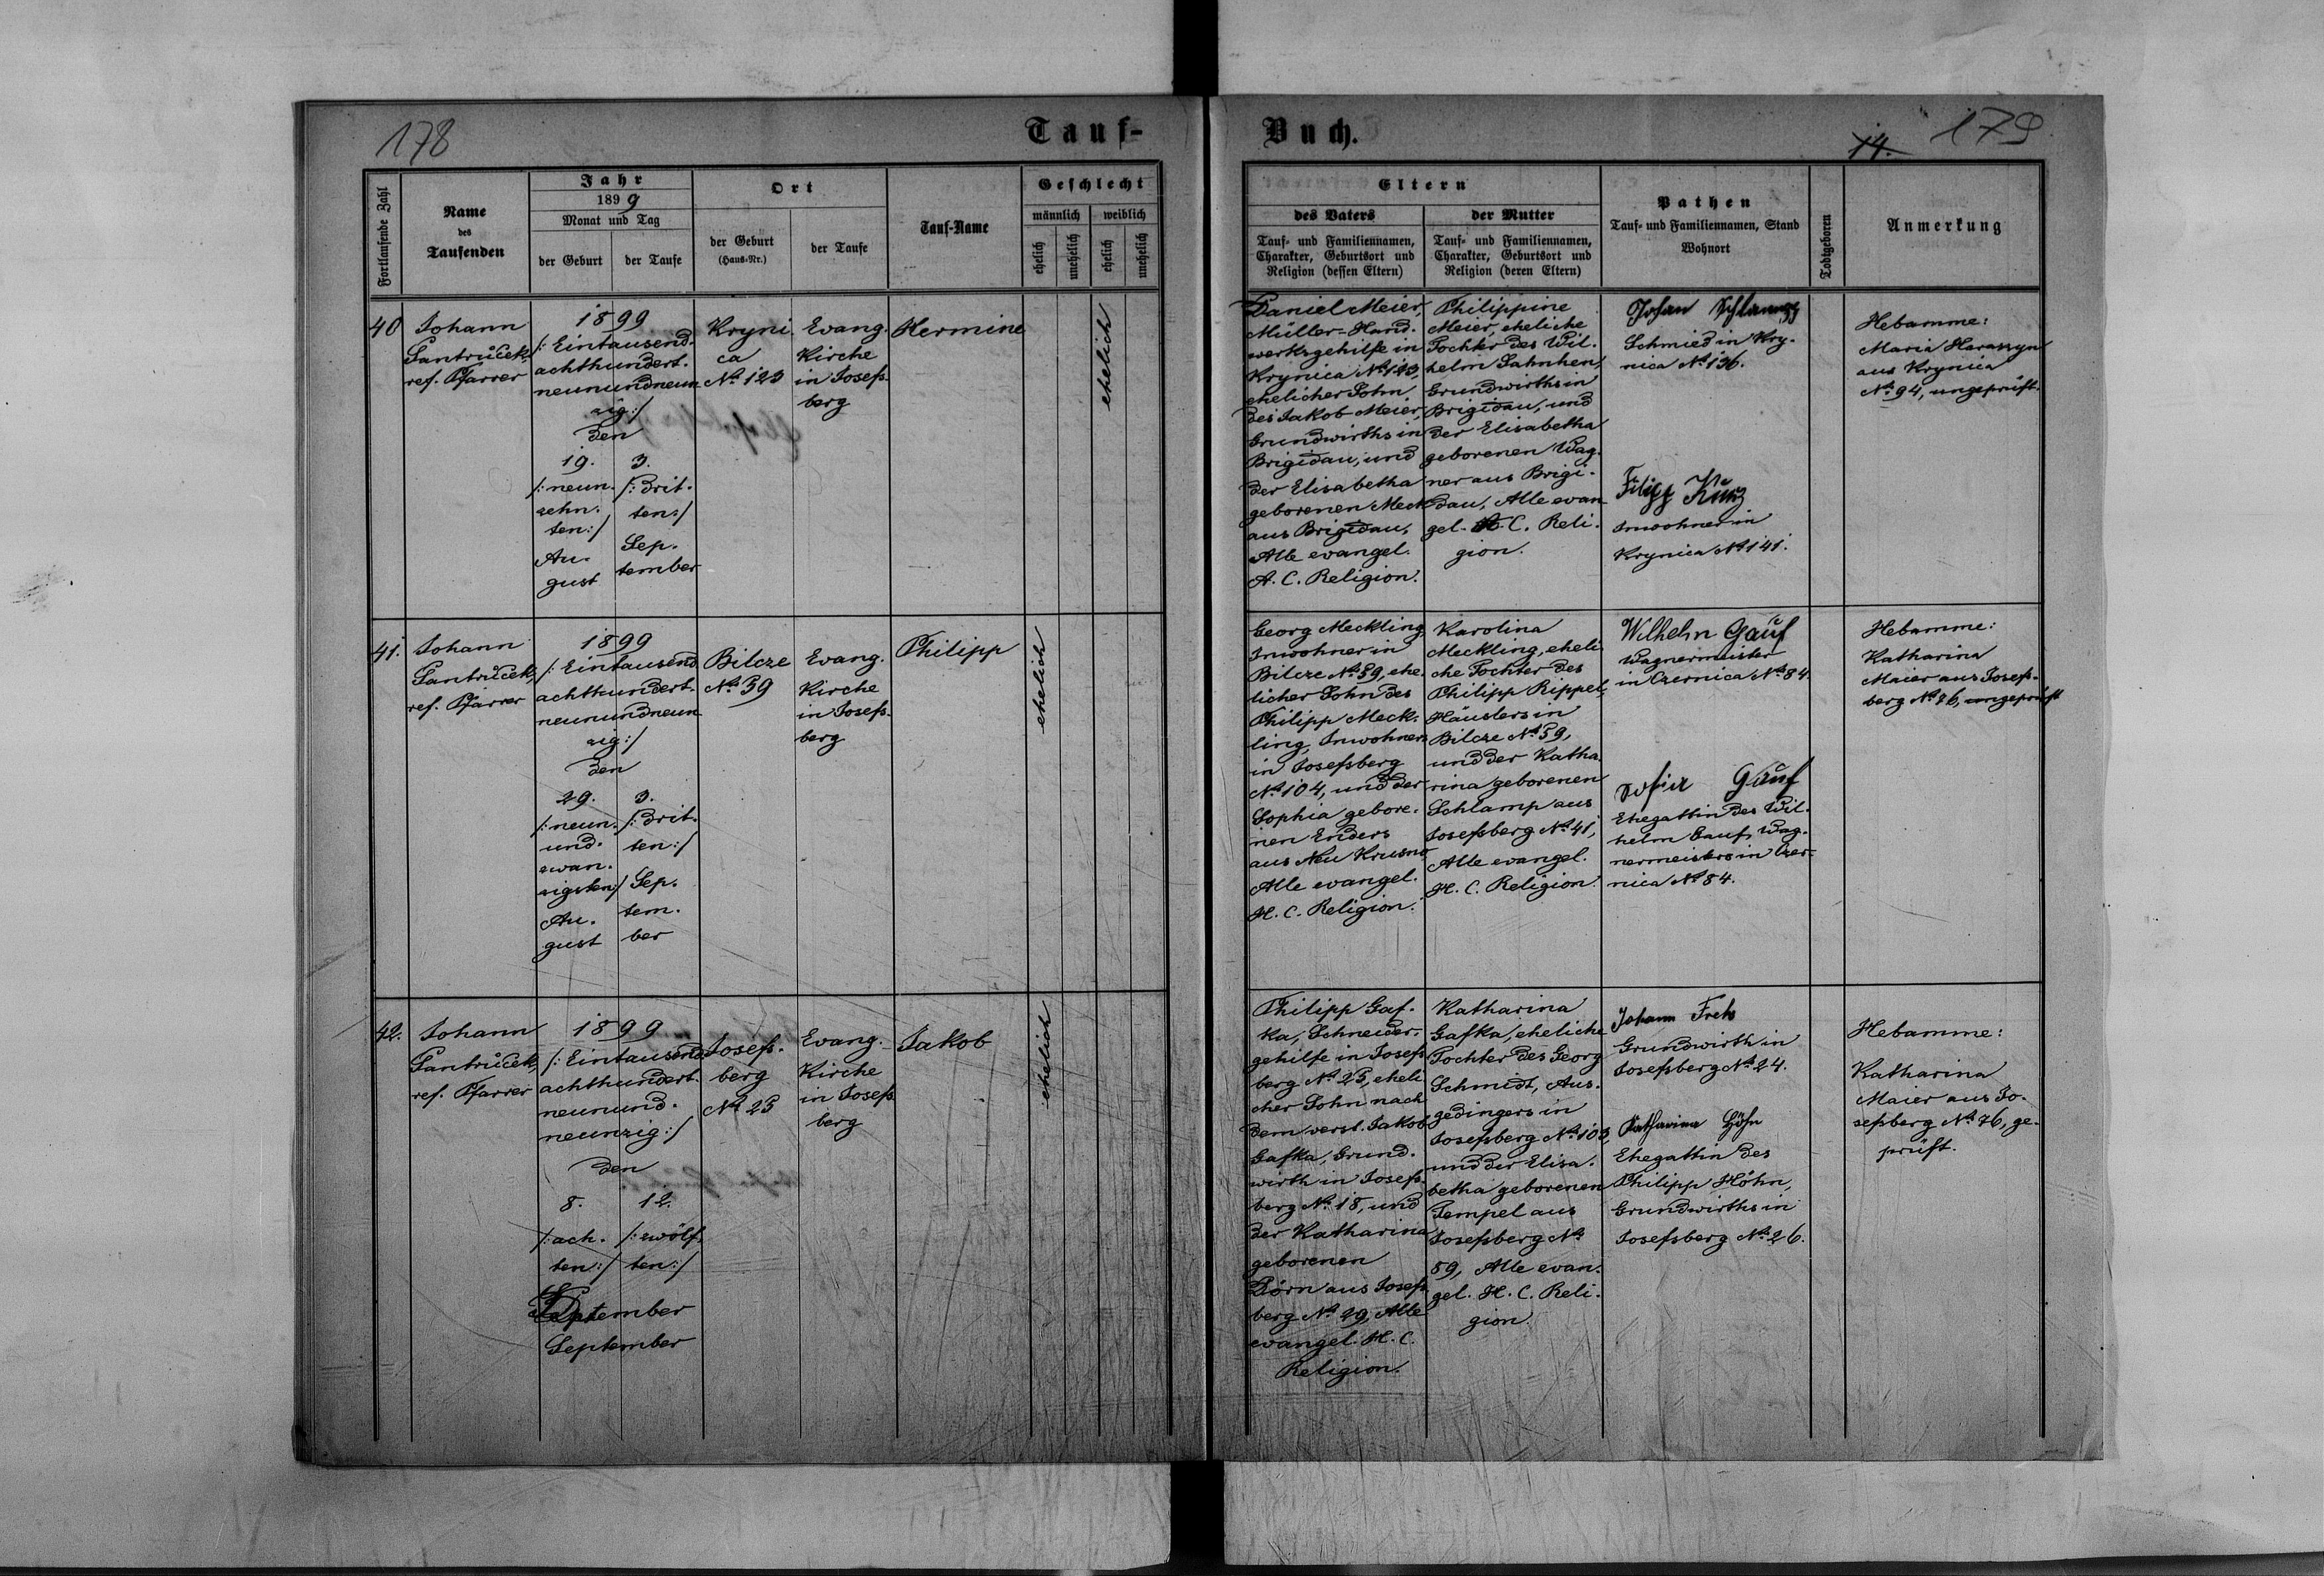 178
Tauf-
Fortlaufende Zahl
Name
des
Taufenden
Jahr
1899
Monat und Tag
der Geburt
der Taufe
Ort
der Geburt
(Haus-Nr.)
der Taufe
Tauf-Name
Geschlecht
männlich
weiblich
ehelich
unehelich
ehelich
unehelich
40
Johann
Jantruček,
ref. Pfarrer
1899
/: Eintausend-
achthundert-
neunundneun
zig :/
den
19.
/: neun-
zehn-
ten :/
Au-
gust
3.
/: drit-
ten :/
Sep-
tember
Kryni-
ca
No 123
Evang.
Kirche
in Josefs-
berg
Hermine
ehelich
41.
Johann
Jantruček,
ref. Pfarrer
1899
/: Eintausend
achthundert-
neunundneun
zig :/
den
29.
/: neun-
und-
zwan-
zigsten :/
Au-
gust
3.
/: drit-
ten :/
Sep-
tem-
ber
Bilcze
No 59
Evang.
Kirche
in Josefs-
berg
Philipp
ehelich
42.
Johann
Jantruček,
ref. Pfarrer
1899
/: Eintausend
achthundert-
neunund-
neunzig :/
den
8.
/: ach-
ten :/
12.
/: zwölf-
ten :/
September
Josefs-
berg
No 25
Evang.
Kirche
in Josefs
berg
Jakob
ehelich
Buch.
14.
179
Eltern
des Vaters
Tauf- und Familiennamen,
Charakter, Geburtsort und
Religion (dessen Eltern)
der Mutter
Tauf- und Familiennamen,
Charakter, Geburtsort und
Religion (deren Eltern)
Pathen
Tauf- und Familiennamen, Stand
Wohnort
Todtgeboren
Anmerkung
Daniel Meier,
Müller-Hand-
werksgehilfe in
Krynica No 123,
ehelicher Sohn
des Jakob Meier,
Grundwirths in
Brigidau, und
der Elisabetha
geborenen Meck
aus Brigidau,
Alle evangel.
A. C. Religion.
Philippine
Meier, eheliche
Tochter des Wil-
helm Sahnhen,
Grundwirths in
Brigidau, und
der Elisabetha
geborenen Wag-
ner aus Brigi-
dau, Alle evan-
gel. A. C. Reli-
gion.
Johan
Schmied in Kry-
nica No 136.
Filipp Kunz
Inwohner in
Krynica No 141.
Hebamme:
Maria Harassyn
aus Krynica
No 94, ungeprüft.
Georg Meckling,
Inwohner in
Bilcze No 59, ehe-
licher Sohn des
Philipp Meck-
ling, Inwohners
in Josefsberg
No 104, und der
Sophia gebore-
nen Enders
aus Neu Krusno
Alle evangel.
H. C. Religion.
Karolina
Meckling, eheli-
che Tochter des
Philipp Rippel,
Häuslers in
Bilcze No 59,
und der Katha-
rina geborenen
Schlamp aus
Josefsberg No 41,
Alle evangel.
H. C. Religion.
Wilhelm Gauf
Wagnermeister
in Czernica No 84.
Sofia Gauf
Ehegattin des Wil-
helm Gauf, Wag-
nermeisters in Czer-
nica No 84.
Hebamme:
Katharina
Maier aus Josefs-
berg No 76, ungeprüft
Philipp Gaf-
ka, Schneider-
gehilfe in Josefs
berg No 25, eheli
cher Sohn nach
dem verst. Jakob
Gafka, Grund-
wirth in Josefs-
berg No 18, und
der Katharina
geborenen
Dörn aus Josefs
berg No 29, Alle
evangel. H. C.
Religion.
Katharina
Gafka, eheliche
Tochter des Georg
Schmidt, Aus-
gedingers in
Josefsberg No 103,
und der Elisa-
betha geborenen
Tempel aus
Josefsberg No
89, Alle evan-
gel. H. C. Reli-
gion.
Johann
Grundwirth in
Josefsberg No 24.
Katharina Höhn
Ehegattin des
Philipp Höhn,
Grundwirths in
Josefsberg No 26.
Hebamme:
Katharina
Maier aus Jo-
sefsberg No 76, ge-
prüft.